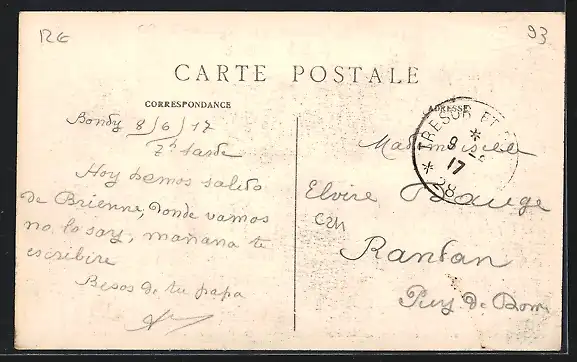 RE
93
CARTE POSTALE
CORRESPONDANCE
ADRESSE
Bondy 8/6/17
7h tarde
Hoy hemos salido
de Brienne, donde vamos
no lo say, mañana te
escribire
Besos de tu papa
TRESOR ET
9
17
28
Mademoiselle
Elvire Bauge
C24
Randan
Puy de Dom